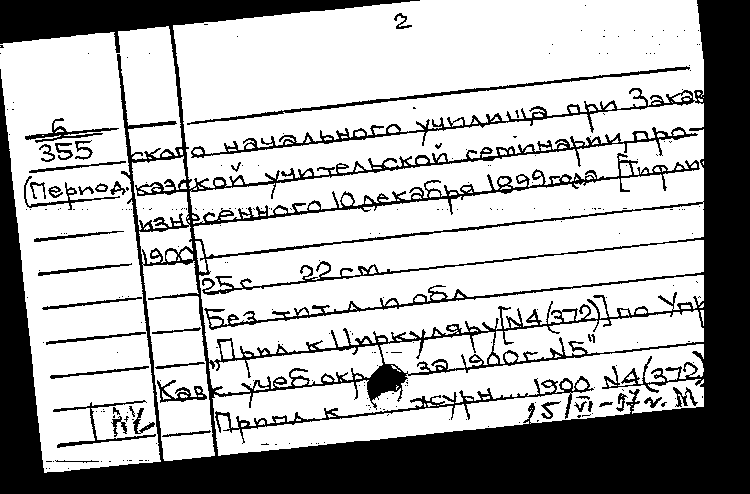 2
Б
355
(Период.)
ского начального училища при Закав
казской учительской семинарии, про-
изнесенного 10 декабря 1899 года. [Тифли
1900].
25 с 22 см.
Без тит. л и обл
„Прил. к Циркуляру [N4(372)] по Упр
Кавк. учеб. окр за 1900 г. N5"
Прил к журн.... 1900 N4(372)
15/VI-97 г. М